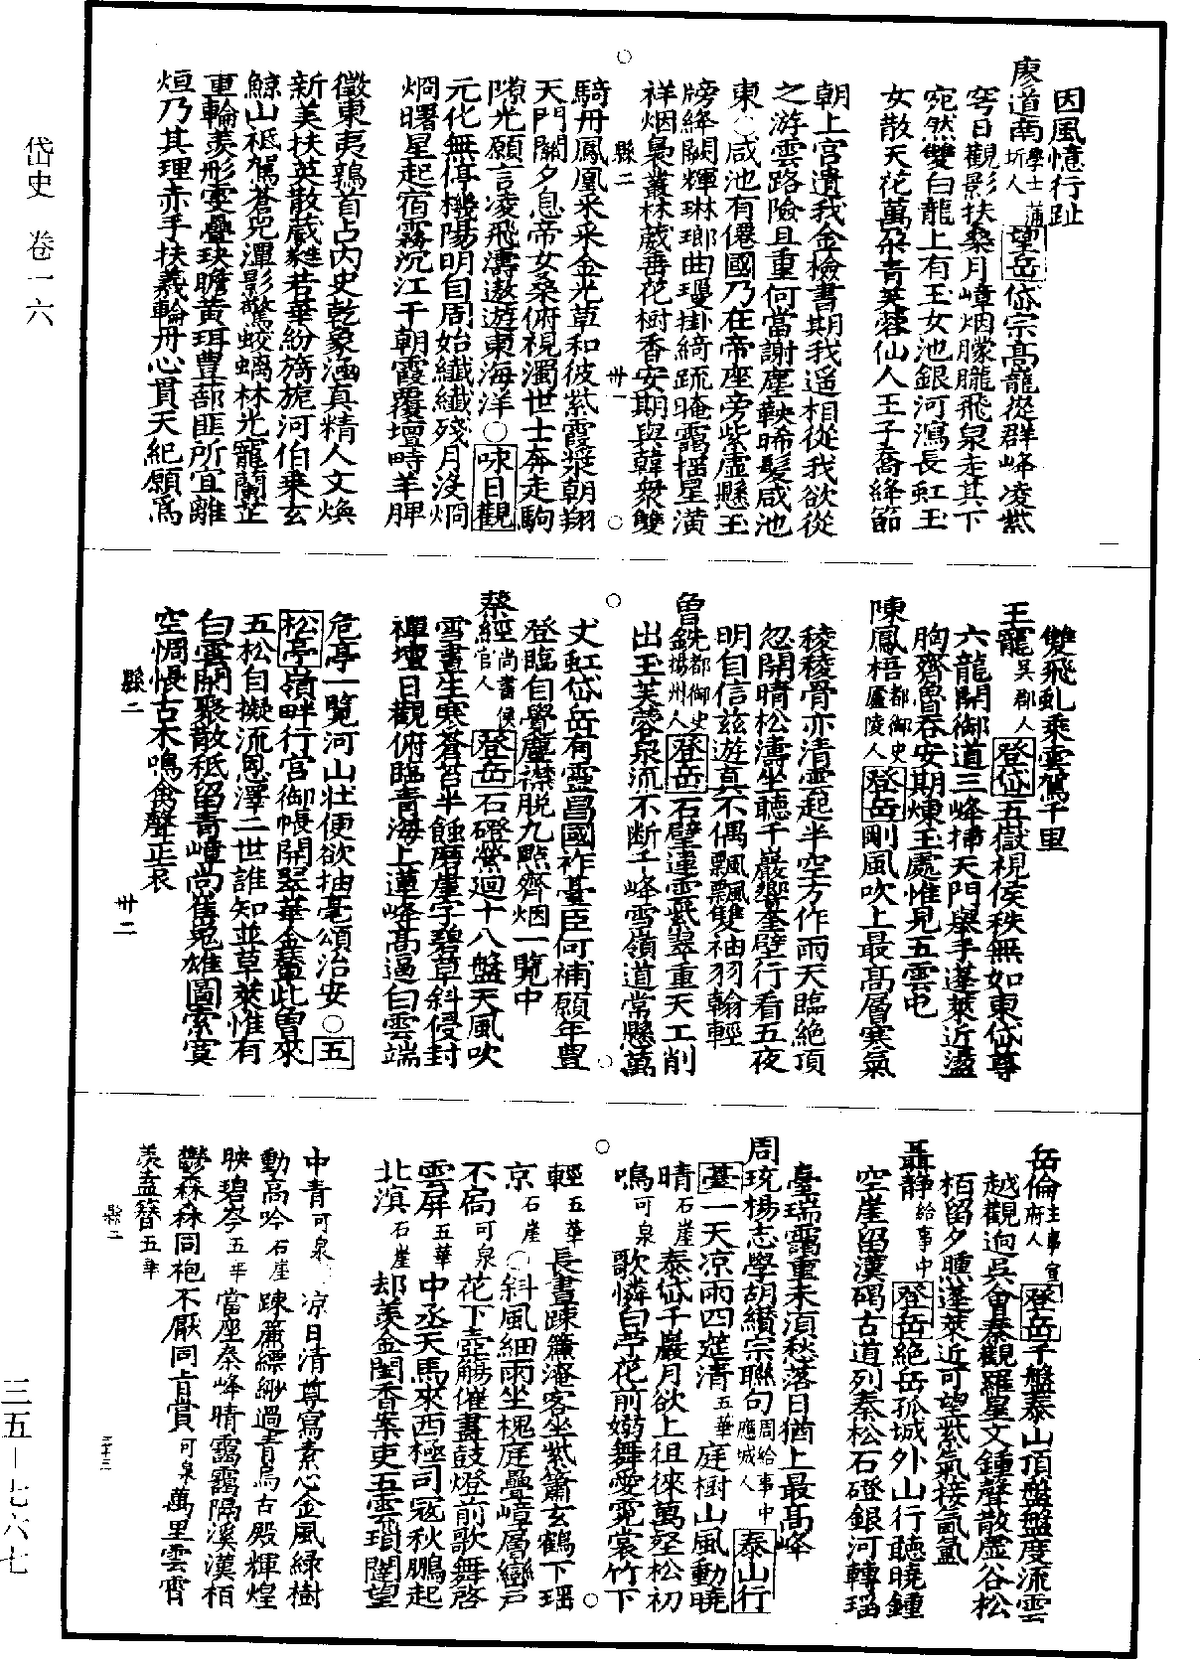 岱史 卷一六
因風憶行趾
廖道南學士蒲圻人望岳岱宗高巃嵸群峰凌紫
穹日觀影扶桑月嶂烟朦朧飛泉走其下
宛然雙白龍上有玉女池銀河瀉長虹玉
女散天花萬朶青芙蓉仙人王子喬絳節
朝上宮遺我金檢書期我遥相從我欲從
之游雲路險且重何當謝塵鞅晞髮咸池
東○咸池有僊國乃在帝座旁紫虛懸玉
牓絳闕輝琳瑯曲璦掛綺疏晻靄揺星潢
祥烟裊叢林葳蕤花樹香安期與韓衆雙
縣二 卅一
騎丹鳳凰采采金光草和彼紫霞漿朝翔
天門關夕息帝女桑俯視濁世士奔走駒
隙光願言凌飛濤遨遊東海洋○咏日觀
元化無停機陽明自周始纖纖殘月没炯
炯曙星起宿霧沉江干朝霞覆壇畤羊脾
徵東夷鶉首占内史乾象涵真精人文煥
新美扶英散葳蕤若華紛旖旎河伯乗玄
鯨山祗駕蒼兕潭影驚蛟螭林光寵蘭芷
重輪羡形雯疊玦瞻黄珥豊蔀匪所宜離
烜乃其理亦手扶羲輪丹心貫天紀願爲
一
雙飛虬乘雲駕千里
王寵吳郡人登岱五嶽視侯秩無如東岱尊
六龍開御道三峰插天門舉手蓬萊近盪
胸齊魯吞安期煉玉處惟見五雲屯
陳鳳梧都御史廬陵人登岳剛風吹上最高層寒氣
稜稜骨亦清雲起半空方作雨天臨絶頂
忽開晴松濤坐聽千巖響奎壁行看五夜
明自信兹遊真不偶飄飄雙袖羽翰輕
魯銑都御史揚州人登岳石壁連雲紫翠重天工削
出玉芙蓉泉流不断千峰雪嶺道常懸萬
丈虹岱岳有靈昌國祚臺臣何補願年豊
登臨自覺塵襟脱九㸃齊烟一覽中
蔡經尚書侯官人登岳石磴縈迴十八盤天風吹
雪晝生寒蒼苔半蝕磨崖字碧草斜侵封
禪壇日觀俯臨青海上蓮峰高逼白雲端
危亭一覽河山壯便欲抽毫頌治安○五
松亭嶺畔行宫御帳開翠華金輦此曾來
五松自擬流恩澤二世誰知並草萊惟有
白雲閒聚散秪留青嶂尚舊兔雄圖索寞
空惆悵古木鳴禽聲正哀
縣二 卅二
岳倫主事宣府人登岳千盤泰山頂盤盤度流雲
越觀逈吳會秦觀羅星文鍾聲散虛谷松
栢留夕曛蓬萊近可望紫氣接氤氳
聶静給事中登岳絶岳孤城外山行聽曉鍾
空崖留漢碣古道列秦松石磴銀河轉瑶
臺瑞靄重未湏愁落日猶上最高峰
周琉楊志學胡纉宗聯句周給事中應城人泰山行
臺一天凉雨四筵清五華庭樹山風動曉
晴石崖泰岱千巖月欲上徂徠萬壑松初
鳴可泉歌憐白苧花前嫋舞愛霓裳竹下
輕五華長晝踈簾淹客坐紫簫玄鶴下瑶
京石崖○斜風細雨坐槐庭疊嶂層巒戸
不扃可泉花下壺觴催畫鼓燈前歌舞啓
雲屏五華中丞天馬來西極司寇秋鵬起
北滇石崖却羡金閨香案吏五雲瑣闥望
中青可泉凉日清尊寫素心金風綠樹
動高吟石崖踈簾縹緲過青鳥古殿輝煌
映碧岑五華當座秦峰晴靄靄隔溪漢栢
鬱森森同袍不厭同肯賞可泉萬里雲霄
羡盍簪五華
縣二 三十三
三五—七六七